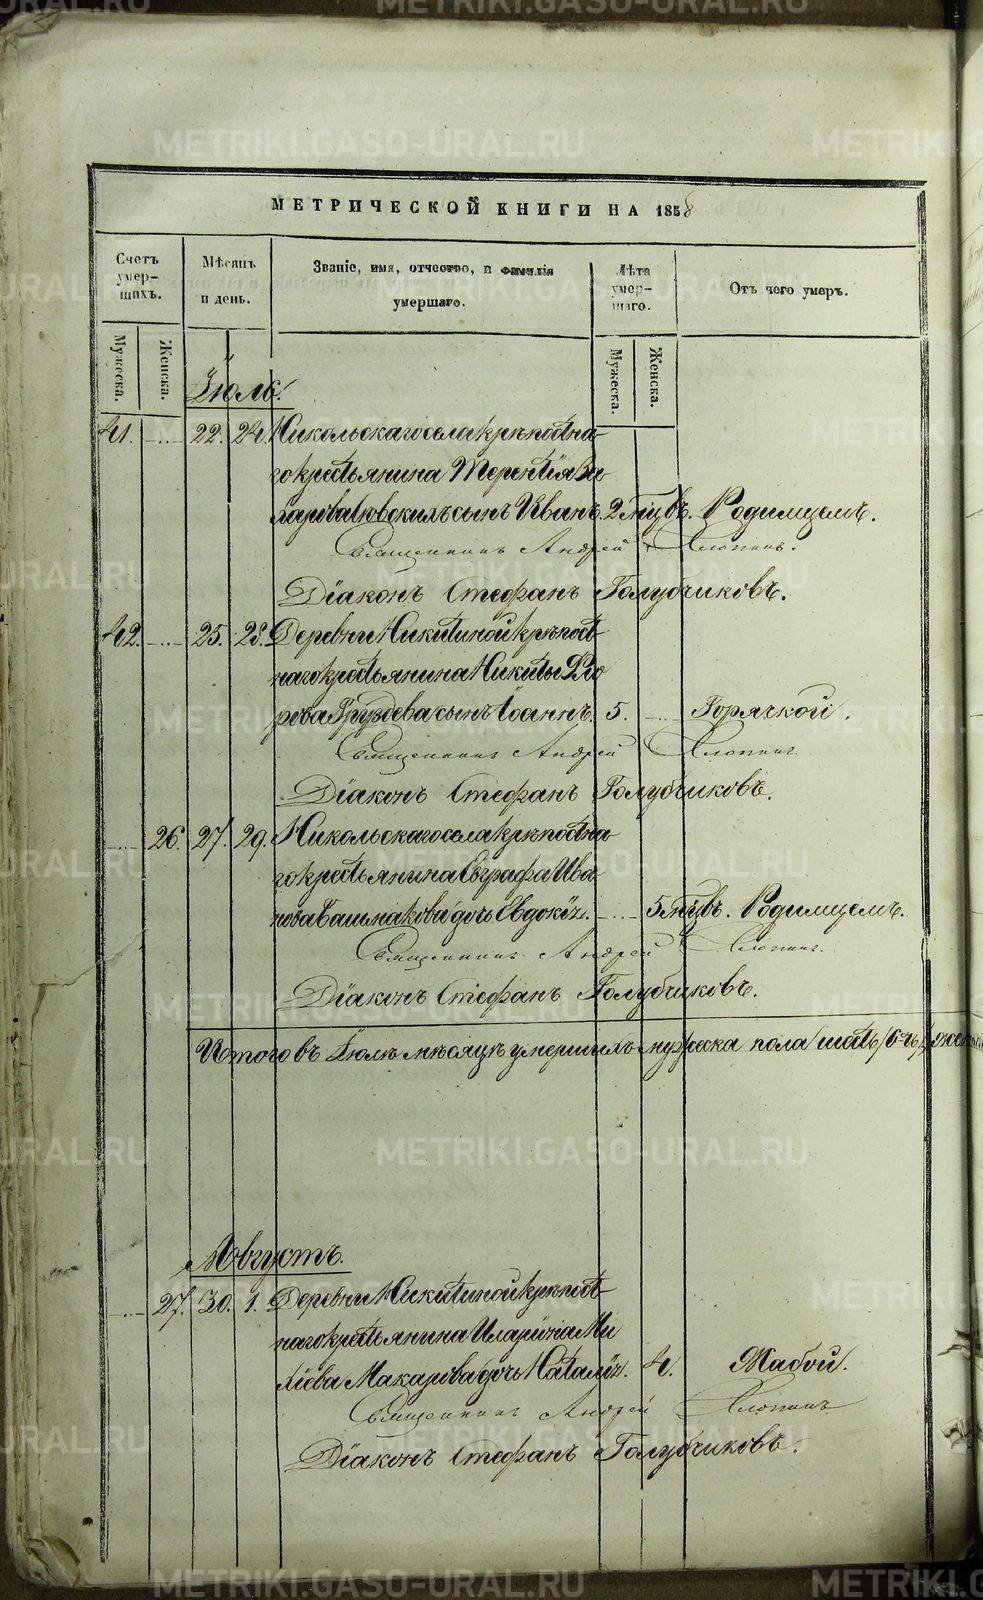 МЕТРИЧЕСКОЙ КНИГИ НА 1858
Счетъ умер-шихъ.
Мѣсяцъ и день.
Званіе, имя, отчество, и фамилія умершаго.
Лѣта умер-шаго.
Отъ чего умеръ.
Мужеска.
Женска.
Мужеска.
Женска.
Іюль.
41. 22. 24. Никольскаго села крѣпостна-
го крестьянина Терентія
сынъ Иванъ. 2 мцвъ. Родимцемъ.
Священникъ Андрей Хлопинъ.
Діаконъ Стефанъ Голубчиковъ.
42. 25. 28. Деревни Никитиной крѣпост-
наго крестьянина Никиты Ѳео
рова Груздева сынъ Іоаннъ. 5. Горячкой.
Священникъ Андрей Хлопинъ
Діаконъ Стефанъ Голубчиковъ.
26. 27. 29. Никольскаго села крѣпостна-
го крестьянина Евграфа Ива
нова Башмакова дочь Евдокія. 5 мцвъ. Родимцемъ.
Священникъ Андрей Хлопинъ.
Діаконъ Стефанъ Голубчиковъ.
Итого въ Іюлѣ мѣсяцѣ умершихъ мужеска пола шесть /6-ть/,
Августъ.
27. 30. 1. Деревни Никитиной крѣпост-
наго крестьянина Иларіона Ми
хѣева Макарова дочь Наталія. 4. Жабой.
Священникъ Андрей Хлопинъ
Діаконъ Стефанъ Голубчиковъ.
METRIKI.GASO-URAL.RU